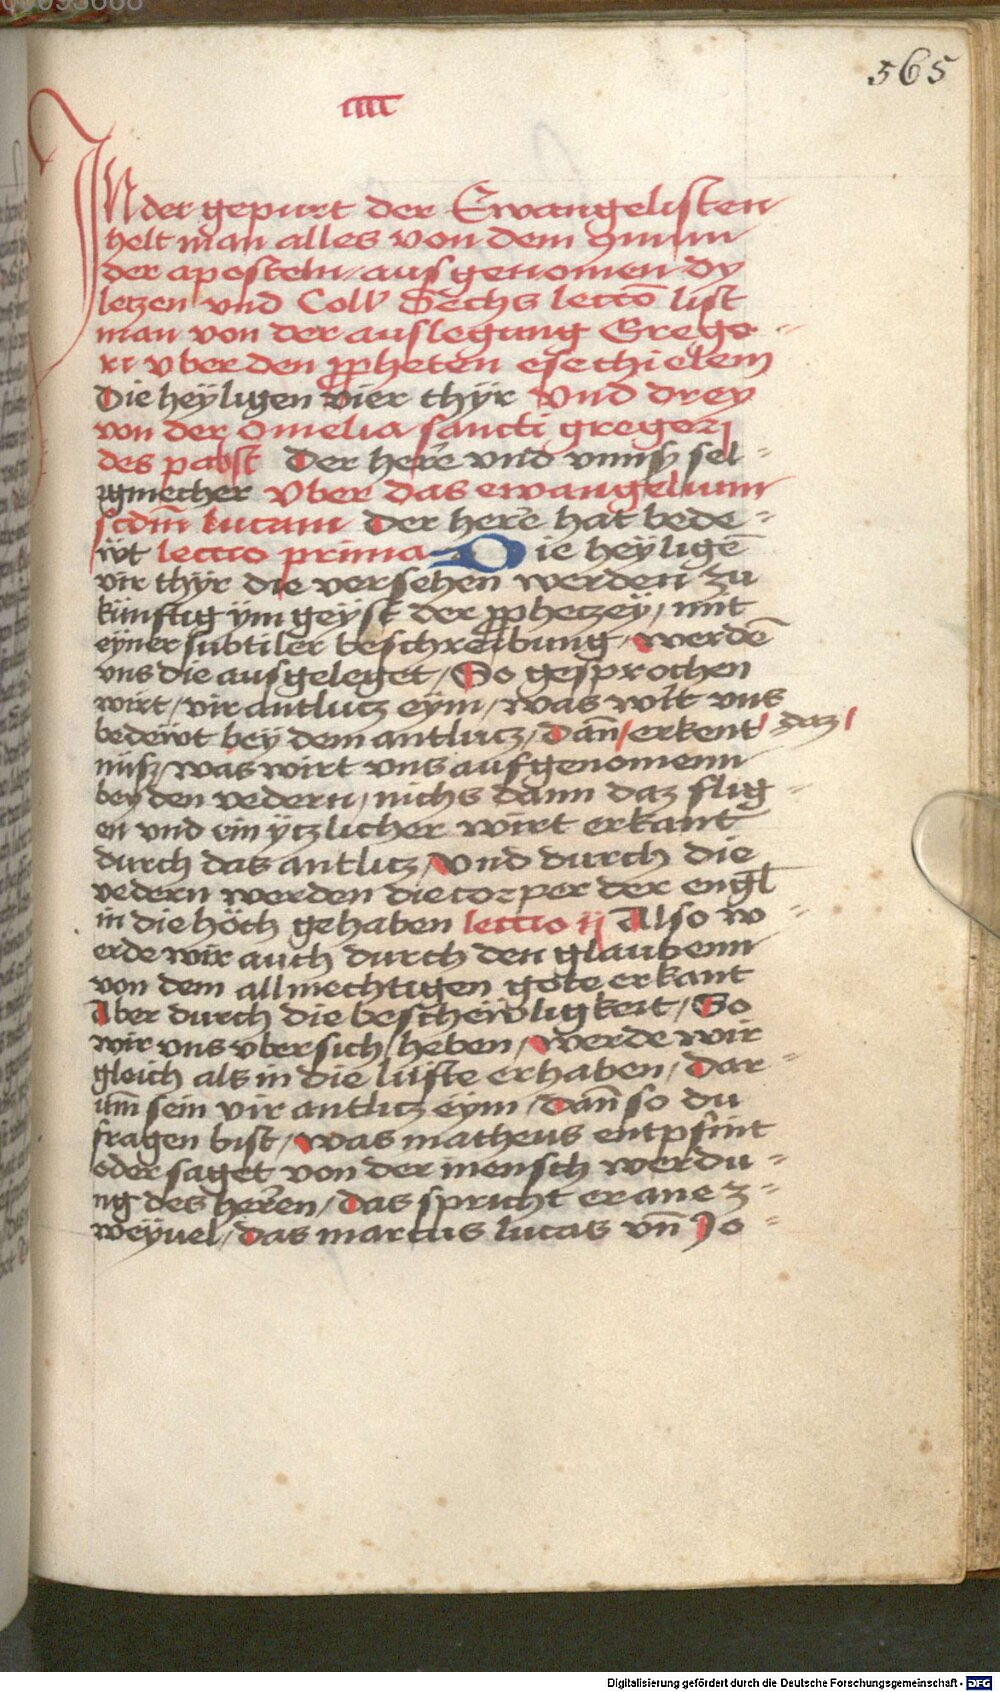 565
iiii
IN der gepurt der Ewangelisten
helt man alles von dem ymnn
der aposteln / ausgenomen dy
letzen vnd Coll' Sechs lectō list
man von der auslegung Grego-
ri vber den ꝓpheten esechielem
Die heÿligen vier thÿr Vnd drey
von der Omelia sancti gregorj
des pabst Der here vnd vnnsz sel-
igmecher Vber das ewangelium
scdm̄ lucam Der here hat bede-
wt lectio prima Die heÿligē
vir thÿr die versehen werden zu
künftig ym geÿst der ꝓphetzeÿ / mit
eÿner subtiler beschreibung / werdē
vns die ausgeleget / So gesprochen
wirt / vir antlutz eÿm / was wirt vns
bedewt beÿ dem antlutz / Dan̄ / erkent daz /
nüsz / was wirt vns aufgenomenn
bey den vedern / nichs dann daz flug-
en vnd ein ÿtzlicher wirt erkant
durch das antlitz / Vnd durch die
vedern werden die corper der engl
in die höch gehaben lectio ij Also w-
erde wir auch durch den glaubenn
von dem allmechtigen gote erkant
Aber durch die bescheẅligkeit / So
wir vns vbersich heben / Werde wir
gleich als in die lüfte erhaben / Dar-
um̄ sein vir antlitz eÿm / Dan̄ so du
fragen bist / was matheus entpfint
oder saget von der mensch werdu-
ng des heren / Das spricht er ane z-
weÿuel / Das marcus lucas vn̄ Jo-
Digitalisierung gefördert durch die Deutsche Forschungsgemeinschaft - DFG